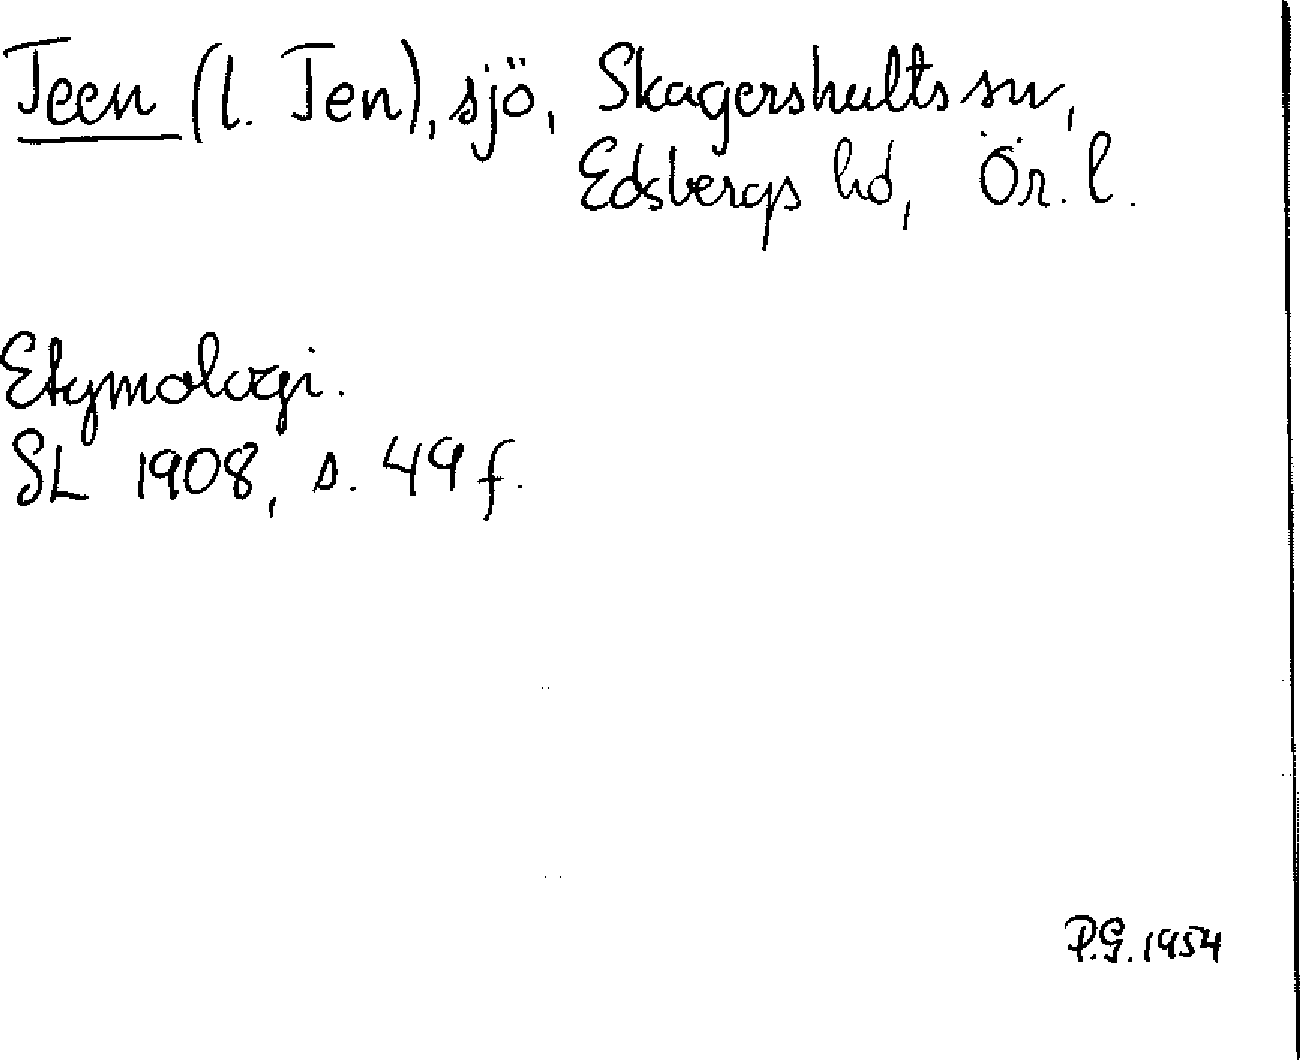 Teen (l. Ten), sjö, Skagershults sn,
Edsbergs hd, Ör. l.
Etymologi.
SL 1908, s. 49 f.
P.G. 1954